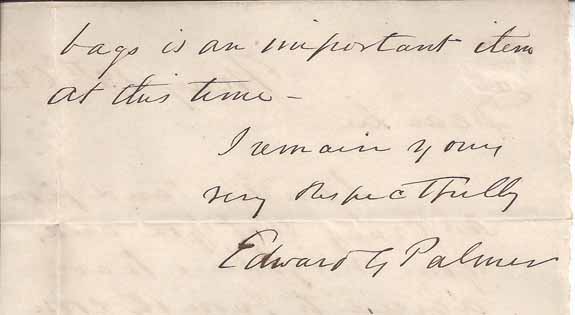 bags is an important item
at this time –
I remain yours
very Respectfully
Edward G Palmer